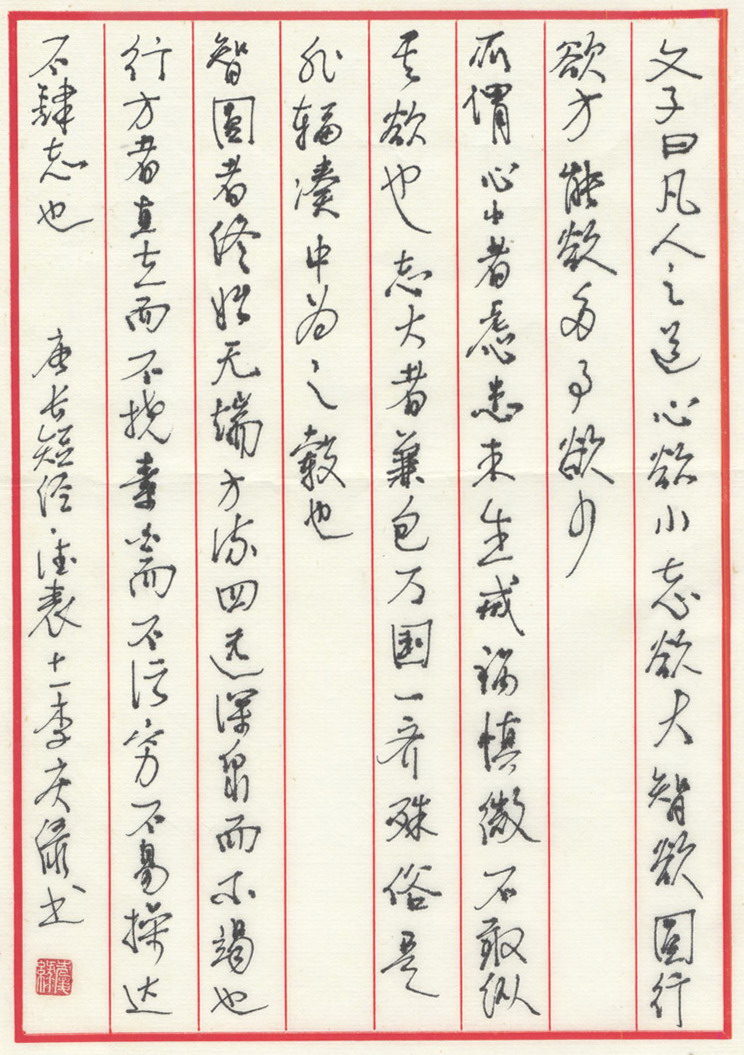 文子曰凡人之道心欲小志欲大智欲圆行
欲方能欲多事欲少
所谓心小者虑患未生戒祸慎微不敢纵
其欲也志大者兼包万国一齐殊俗是
非辐凑中为之毂也
智圆者终始无端方流四远深泉而不竭也
行方者直立而不挠素白而不污穷不易操达
不肆志也 唐长短经·德表十一李庆书